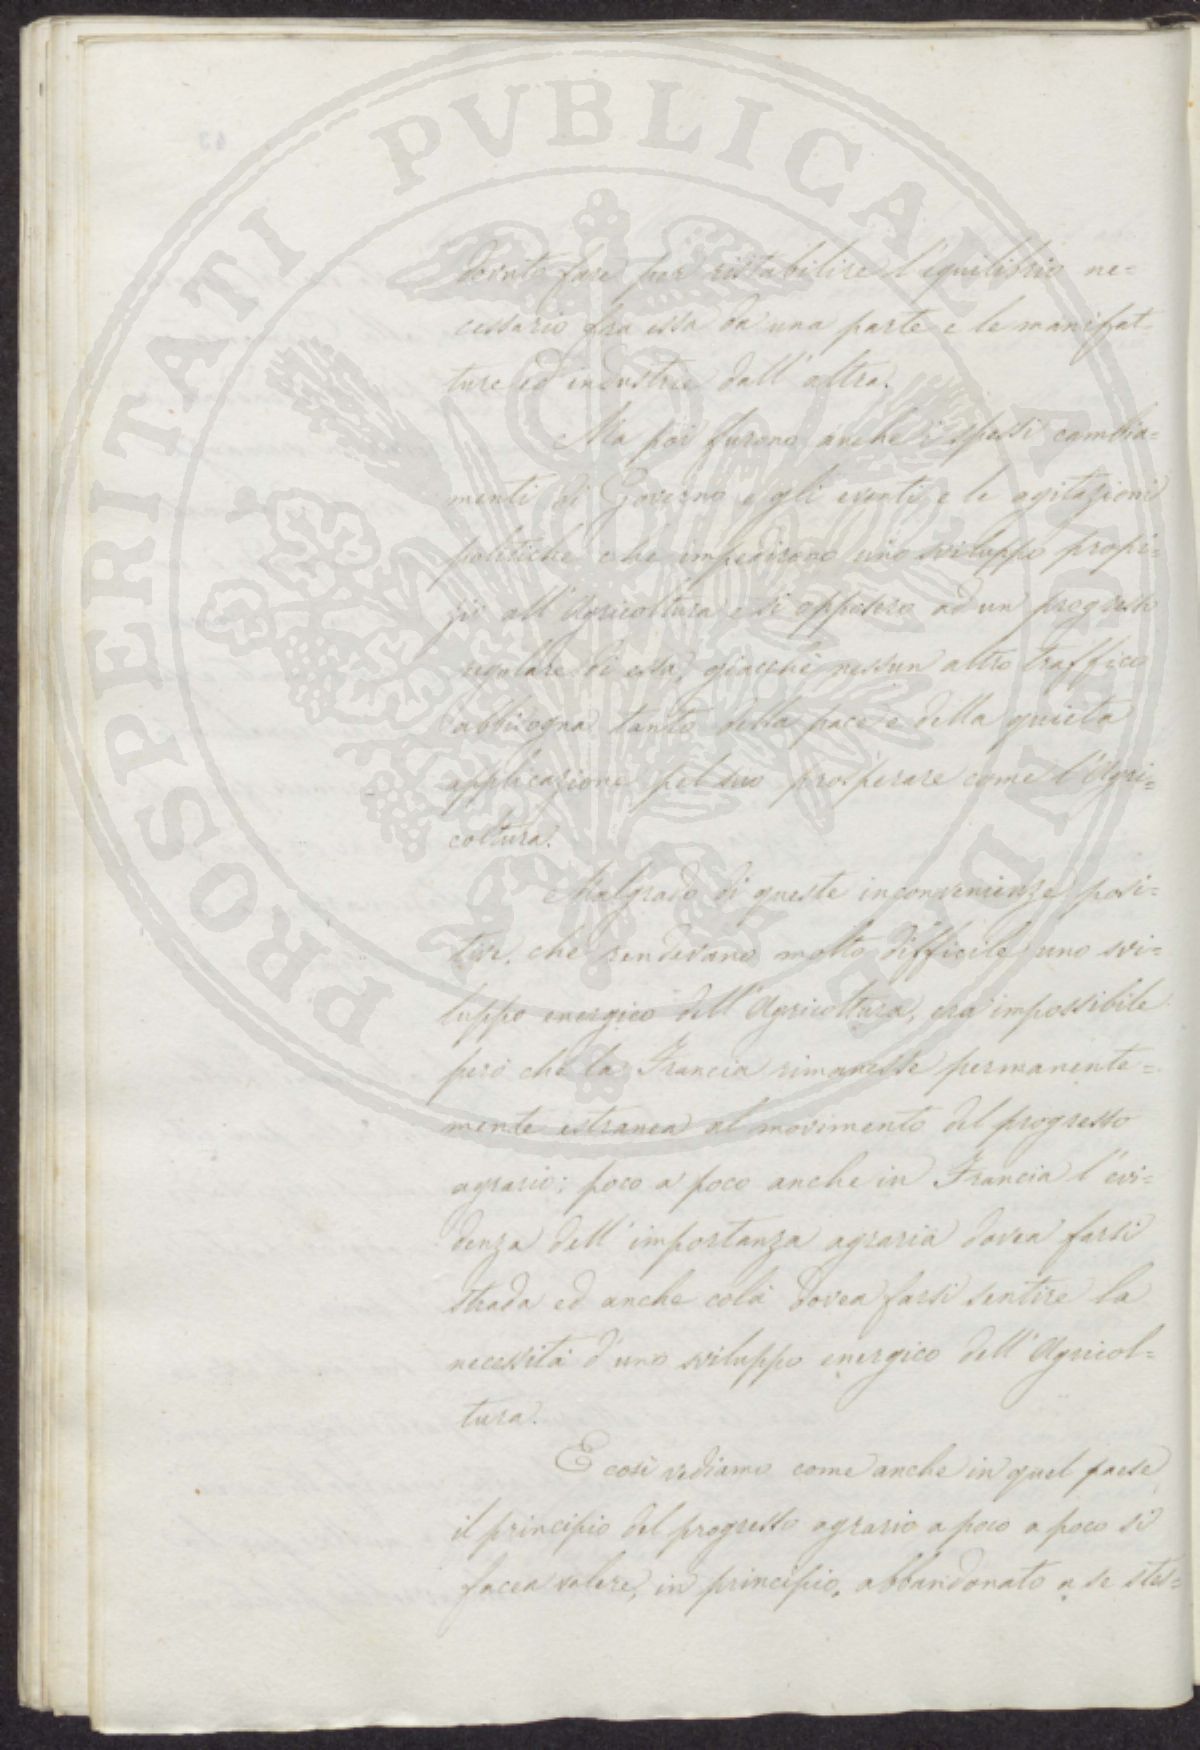 dovuto fare per ristabilire l'equilibrio ne=
cessario fra essa da una parte e le manifat=
ture ed industrie dall'altra.
Ma poi furono anche i spessi cambia=
menti di Governo e gli eventi e le agitazioni
politiche che impedirono uno sviluppo propi=
zio all'Agricoltura e si opposero ad un progresso
regolare di essa, giacchè nessun altro traffico
abbisogna tanto della pace e della quieta
applicazione pel suo prosperare come l'Agri=
coltura.
Malgrado di queste inconvenienze posi=
tive, che rendevano molto difficile uno svi=
luppo energico dell'Agricoltura, era impossibile
però che la Francia rimanesse permanente=
mente estranea al movimento del progresso
agrario; poco a poco anche in Francia l'evi=
denza dell'importanza agraria dovea farsi
strada ed anche colà dovea farsi sentire la
necessità d'uno sviluppo energico dell'Agricol=
tura.
E così vediamo come anche in quel paese
il principio del progresso agrario a poco a poco si
facea valere, in principio, abbandonato a se stes=
PROSPERITATI PUBLICAE